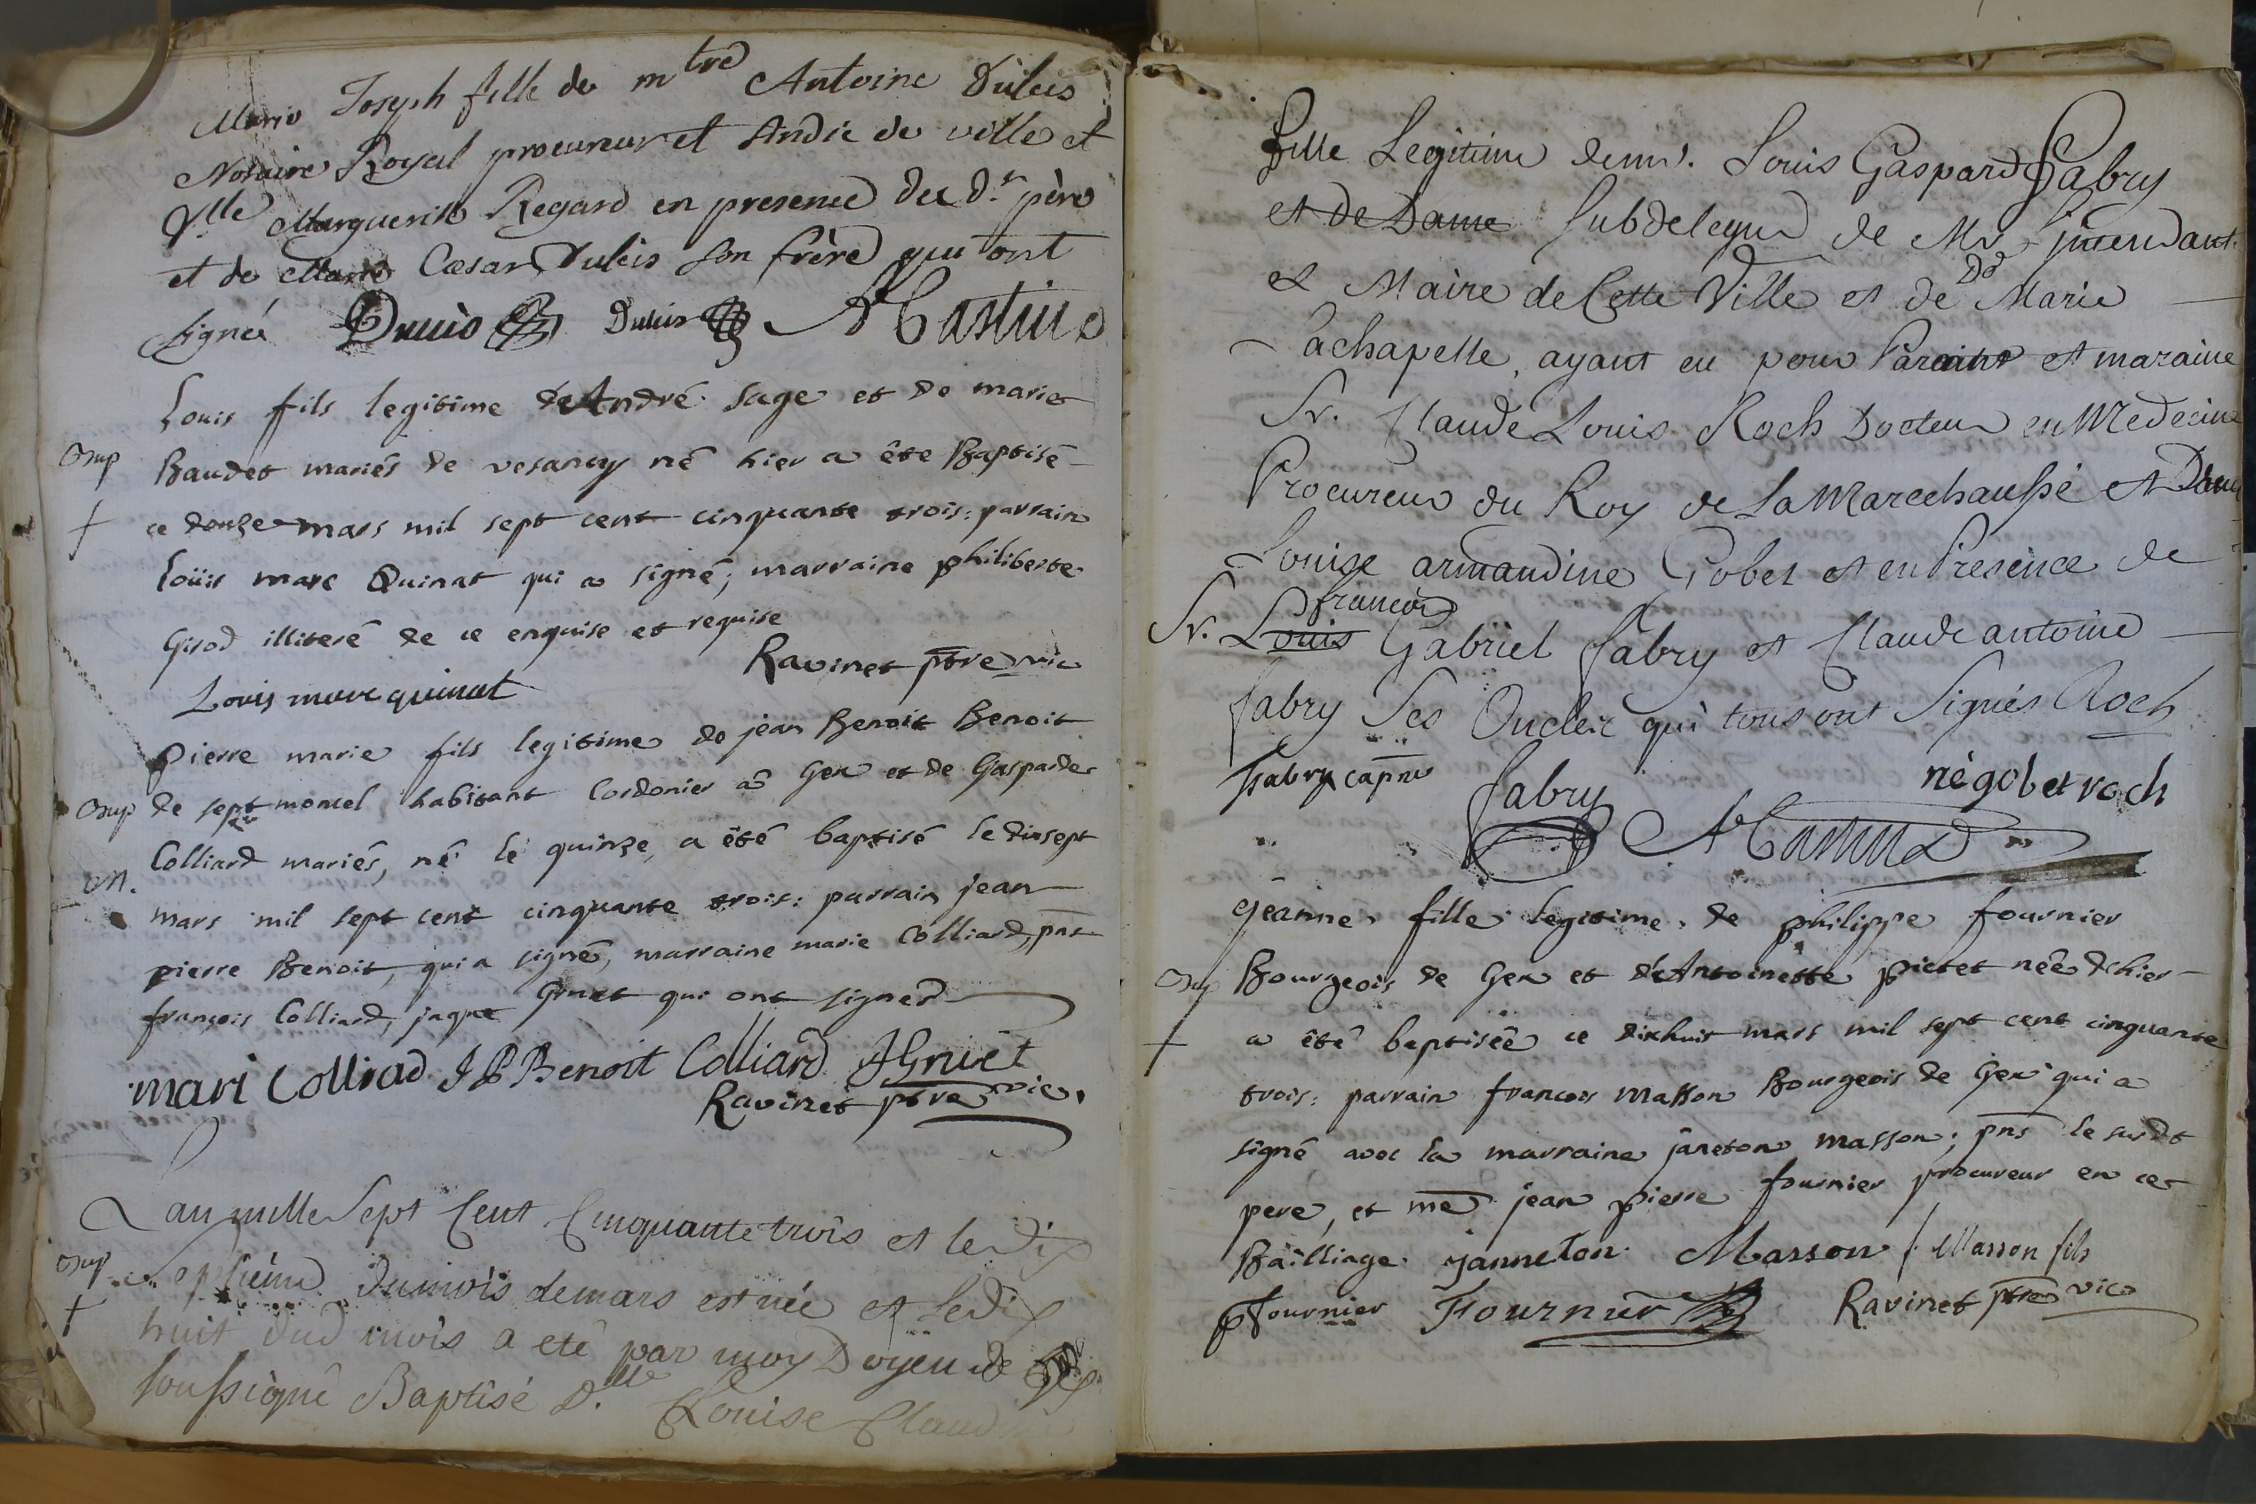 Marie Joseph fille de mtre Antoine Duleis
Notaire Royal procureur et Sindic de ville et
Dlle Marguerite Regard en presence du d.t père
et de Cæsar Duleis son frère qui ont
signés Duleis Duleis A Castin
Louis fils legitime de André sage et de marie
Baudet mariés de vesancy né hier a ête Baptisé
ce douze mars mil sept cent cinquante trois: parrain
Loüis marc Quinat qui a signé; marraine philiberte
Girod illiteré de ce enquise et requise
Ravinet ptre vic
Louis marc quinat
pierre marie fils legitime de jean Benoit Benoit
de septmoncel habitant Cordonier a Gex et de Gasparde
Colliard mariés, né le quinze, a été baptisé le dixsept
mars mil sept cent cinquante trois: parrain jean
pierre Benoit, qui a signé, marraine marie Colliard, pnt
françois Colliard, jaque Gruet qui ont signer
mari Colliad J P Benoit Colliard A Gruet
Ravinet ptre vic.
Lan mille Sept Cent Cinquante trois et le Dix
Septiéme du mois de mars est née et le Dix
huit dud mois a eté par moy Doyen de Gex
soussigné Baptisé D.lle Louise Claud
fille Legitime de mr. Louis Gaspard Fabry
et de Dame Subdelegué de Mr L'Intendant
et Maire de Cette Ville et de De Marie
Lachapelle, ayant eu pour Parain et maraine
Sr. Claude Louis Roch Docteur en Medecine
Procureur du Roy de La Marechaussé et Dame
Louise armandine Gobet et en Presence de
francois
Sr. Louis Gabriel Fabry et Claude antoine
fabry Ses Oncles qui tous ont Signés Roch
Fabry capne fabry négobet roch
A Castin
jeanne fille legitime de philippe fournier
Bourgeois de Gex et d'Antoinette pictet née d hier
a été baptisée ce dixhuit mars mil sept cent cinquante
trois: parrain francois Masson Bourgeois de Gex qui a
signé avec la marraine janeton masson; pns le susdt
pere, et me jean pierre fournier procureur en cet
Bailliage. janneton Masson f. Masson fils
pfournier Fournier Ravinet ptre vic